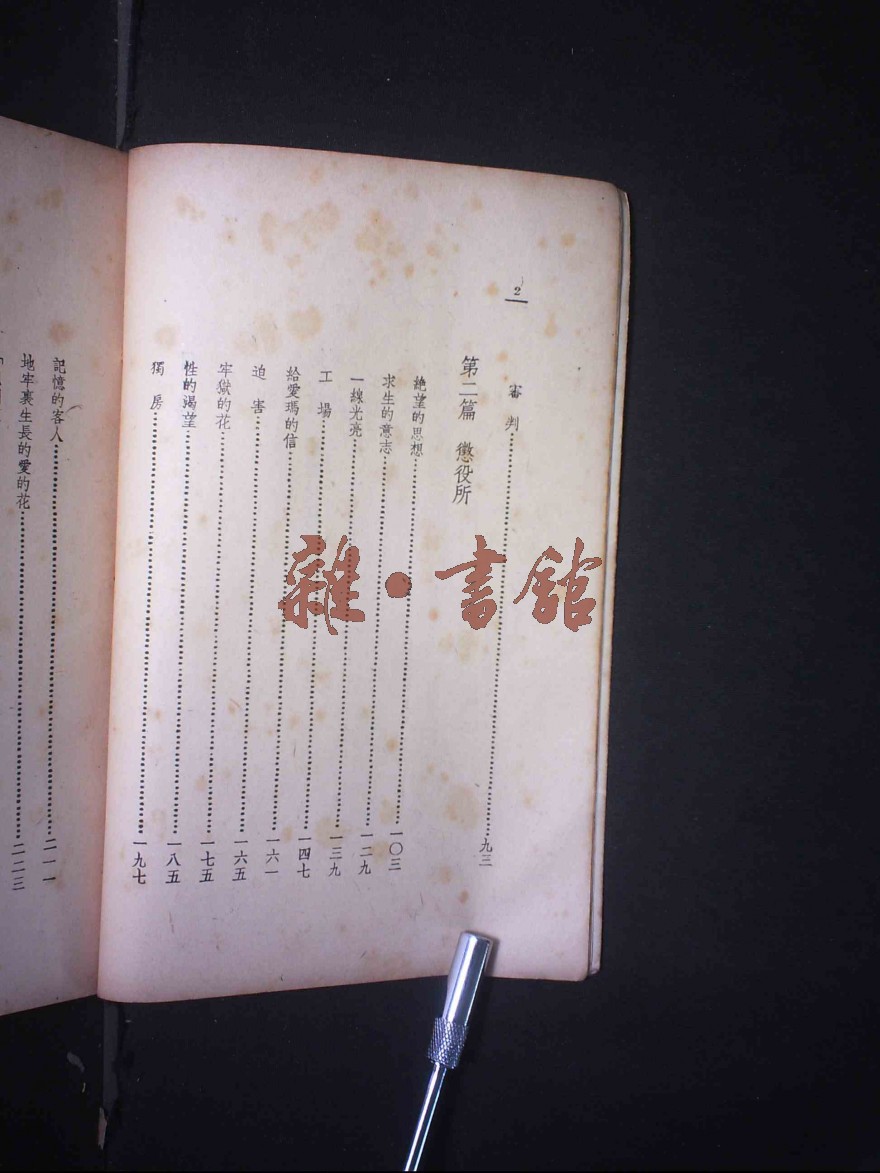 2
審判……九三
第二篇 懲役所
絶望的思想……一〇三
求生的意志……一二九
一線光亮……一三九
工場……一四七
給愛瑪的信……一六一
迫害……一六五
牢獄的花……一七五
性的渴望……一八五
獨房……一九七
記憶的客人……二一一
地牢裏生長的愛的花……二二三
雜·書館